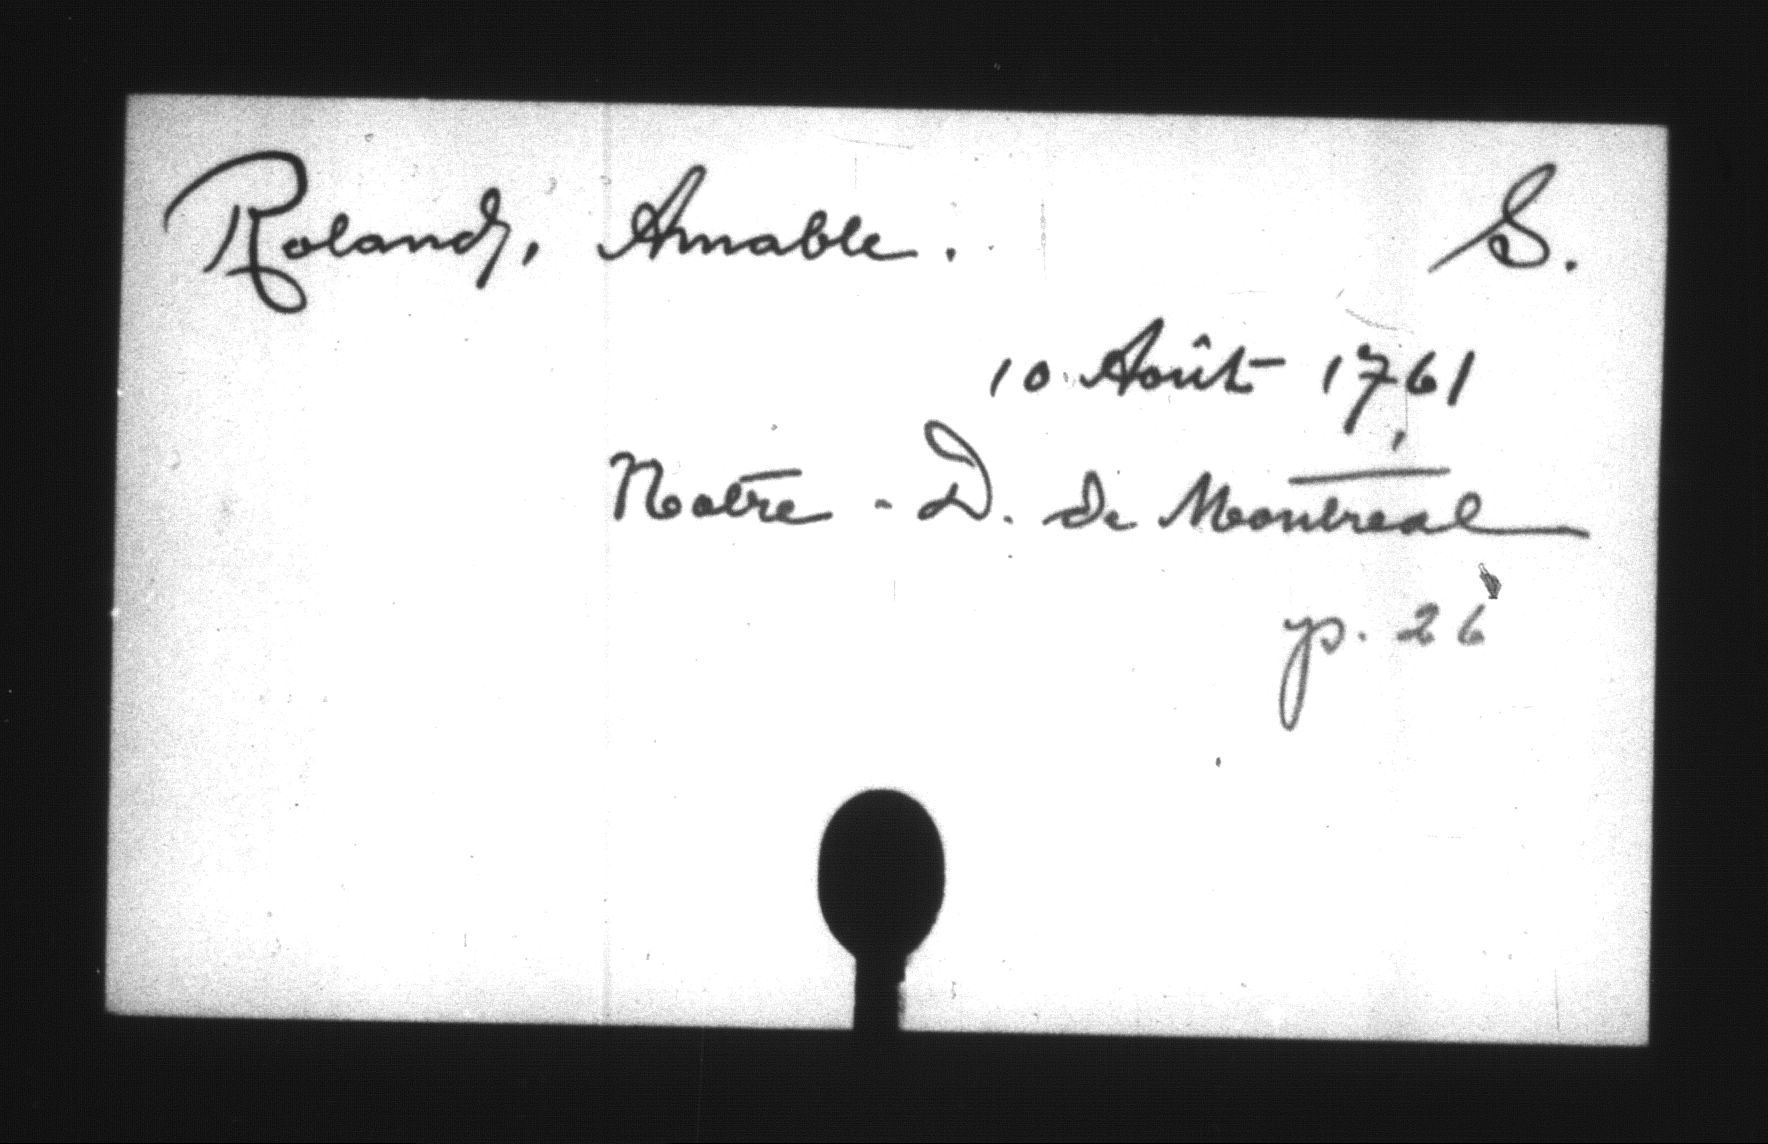 Roland, Amable. S.
10 Août 1761
Notre - D. de Montreal
p. 26